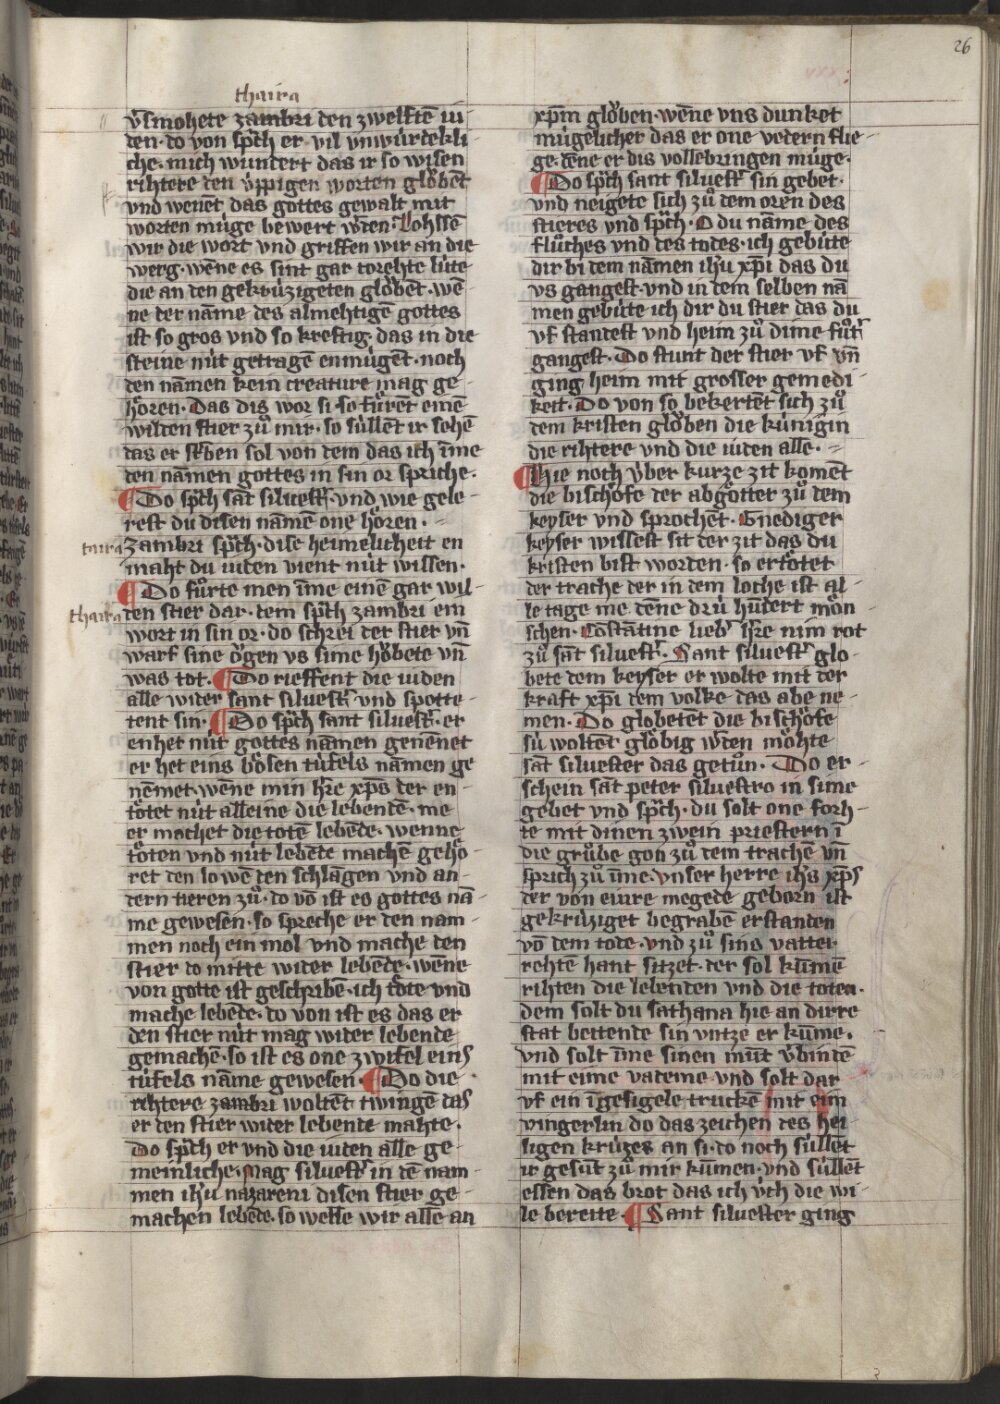 26
thaira
v̾smohete zambri den zwelftē iu
den· do von sp̄ch er· vil vnwúrdekli
che· mich wundert das ir so wisen
rihtere den úppigen worten glo̊bēt
vnd wenēt das gottes gewalt mit
worten múge bewert w̾den· Lohssē
wir die wort vnd griffen wir an die
werg· wēne es sint gar torehte lúte
die an den gekrúzigeten glo̊bēt· wē
ne der nāme des almehtigē gottes
ist so gros vnd so kreftig· das in die
steine nút getragē enmúgēt· noch
den nāmen kein creature mag ge
hoͤren· Das dis wor si· so fuͤrēt einē
wilden stier zuͦ mir· so súllēt ir sehē
das er st̾ben sol von dem das ich īme
den nāmen gottes in sin or spriche·
¶ Do sp̄ch sāt siluest̾· vnd wie gele
rest du disen nāmē one hoͤren·
taira
zambri sp̄ch· dise heimelicheit en
maht du iuden vient nút wissen·
¶ Do fuͦrte men īme einē gar wil
thaira
den stier dar· dem sp̄ch zambri ein
wort in sin or· do schrei der stier vn̄
warf sine oͤgen vs sime hoͤbete vn̄
was tot· ¶ Do rieffent die iuden
alle wider sant siluest̾ vnd spotte
tent sin· ¶ Do sp̄ch sant siluest̾· er
enhet nút gottes nāmen genēnet
er het eins boͤsen túfels nāmen ge
nēmet· wēne min h̾re xp̄s der en
toͤtet nút alleine die lebendē· me
er machet die totē lebēde· wenne
toͤten vnd nút lebēde machē gehoͤ
ret den lowē den schlāgen vnd an
dern tieren zuͦ· do vō ist es gottes nā
me gewesen· so spreche er den nam
men noch ein mol vnd mache den
stier do mitte wider lebēde· wēne
von gotte ist geschribē· ich toͤte vnd
mache lebēde· do von ist es das er
den stier nút mag wider lebende
gemachē· so ist es one zwifel eins
túfels nāme gewesen· ¶ Do die
rihtere zambri woltēt twingē das
er den stier wider lebende mahte·
Do sp̄ch er vnd die iuden alle ge
meinliche· mag siluest̾ in dē nam
men ih̄u nazareni disen stier ge
machen lebēde· so welle wir alle an
xp̄m gloͤben· wēne vns dunket
múgelicher das er one vedern flie
ge· dēne er dis vollebringen múge·
¶ Do sp̄ch sant siluest̾ sin gebet·
vnd neigete sich zuͦ dem oren des
stieres vnd sp̄ch· O du nāme des
fluͦches vnd des todes· ich gebúte
dir bi dem nāmen ih̄u xp̄i das du
vs gangest· vnd in dem selben nā
men gebúte ich dir du stier das du
vf standest vnd heim zuͦ dime fuͦt̾
gangest· Do stunt der stier vf vn̄
ging heim mit grosser gemedi
keit· Do von so bekertēt sich zuͦ
dem kristen gloͤben die kúnigin
die rihtere vnd die iuden alle·
¶ Hie noch v́ber kurze zit komēt
die bischoͤfe der abgoͤtter zuͦ dem
keyser vnd sprochēt· Gnediger
keyser wissest sit der zit das du
kristen bist worden· so ertoͤtet
der trache der in dem loche ist al
le tage me dēne drú hūdert mōn
schen· Cōstātine lieb̾ h̾re nim rot
zuͦ sāt siluest̾· Sant siluest̾ glo
bete dem keyser er wolte mit der
kraft xp̄i dem volke das abe ne
men· Do globetēt die bischoͤfe
sú woltēt gloͤbig w̾den moͤhte
sāt siluester das getuͦn· Do er
schein sāt peter siluestro in sime
gebet vnd sp̄ch· du solt one forh
te mit dinen zwein priestern ī
die gruͦbe gon zuͦ dem trachē vn̄
sprich zuͦ īme· vnser herre ih̄s xp̄s
der von einre megede geborn ist
gekrúziget begrabē erstanden
vō dem tode· vnd zuͦ sins vatter
rehtē hant sitzet· der sol kūmē
rihten die lebenden vnd die toten·
dem solt du sathana hie an dirre
stat beitende sin vntze er kūme·
vnd solt īme sinen mūt v̾bindē
mit eime vademe· vnd solt dar
vf ein īgesigele truckē mit eim
vingerlin do das zeichen des hei
ligen krúzes an si· do noch súllēt
ir gesūt zuͦ mir kūmen· vnd súllēt
essen das brot das ich v́ch die wi
le bereite· ¶ Sant siluester ging